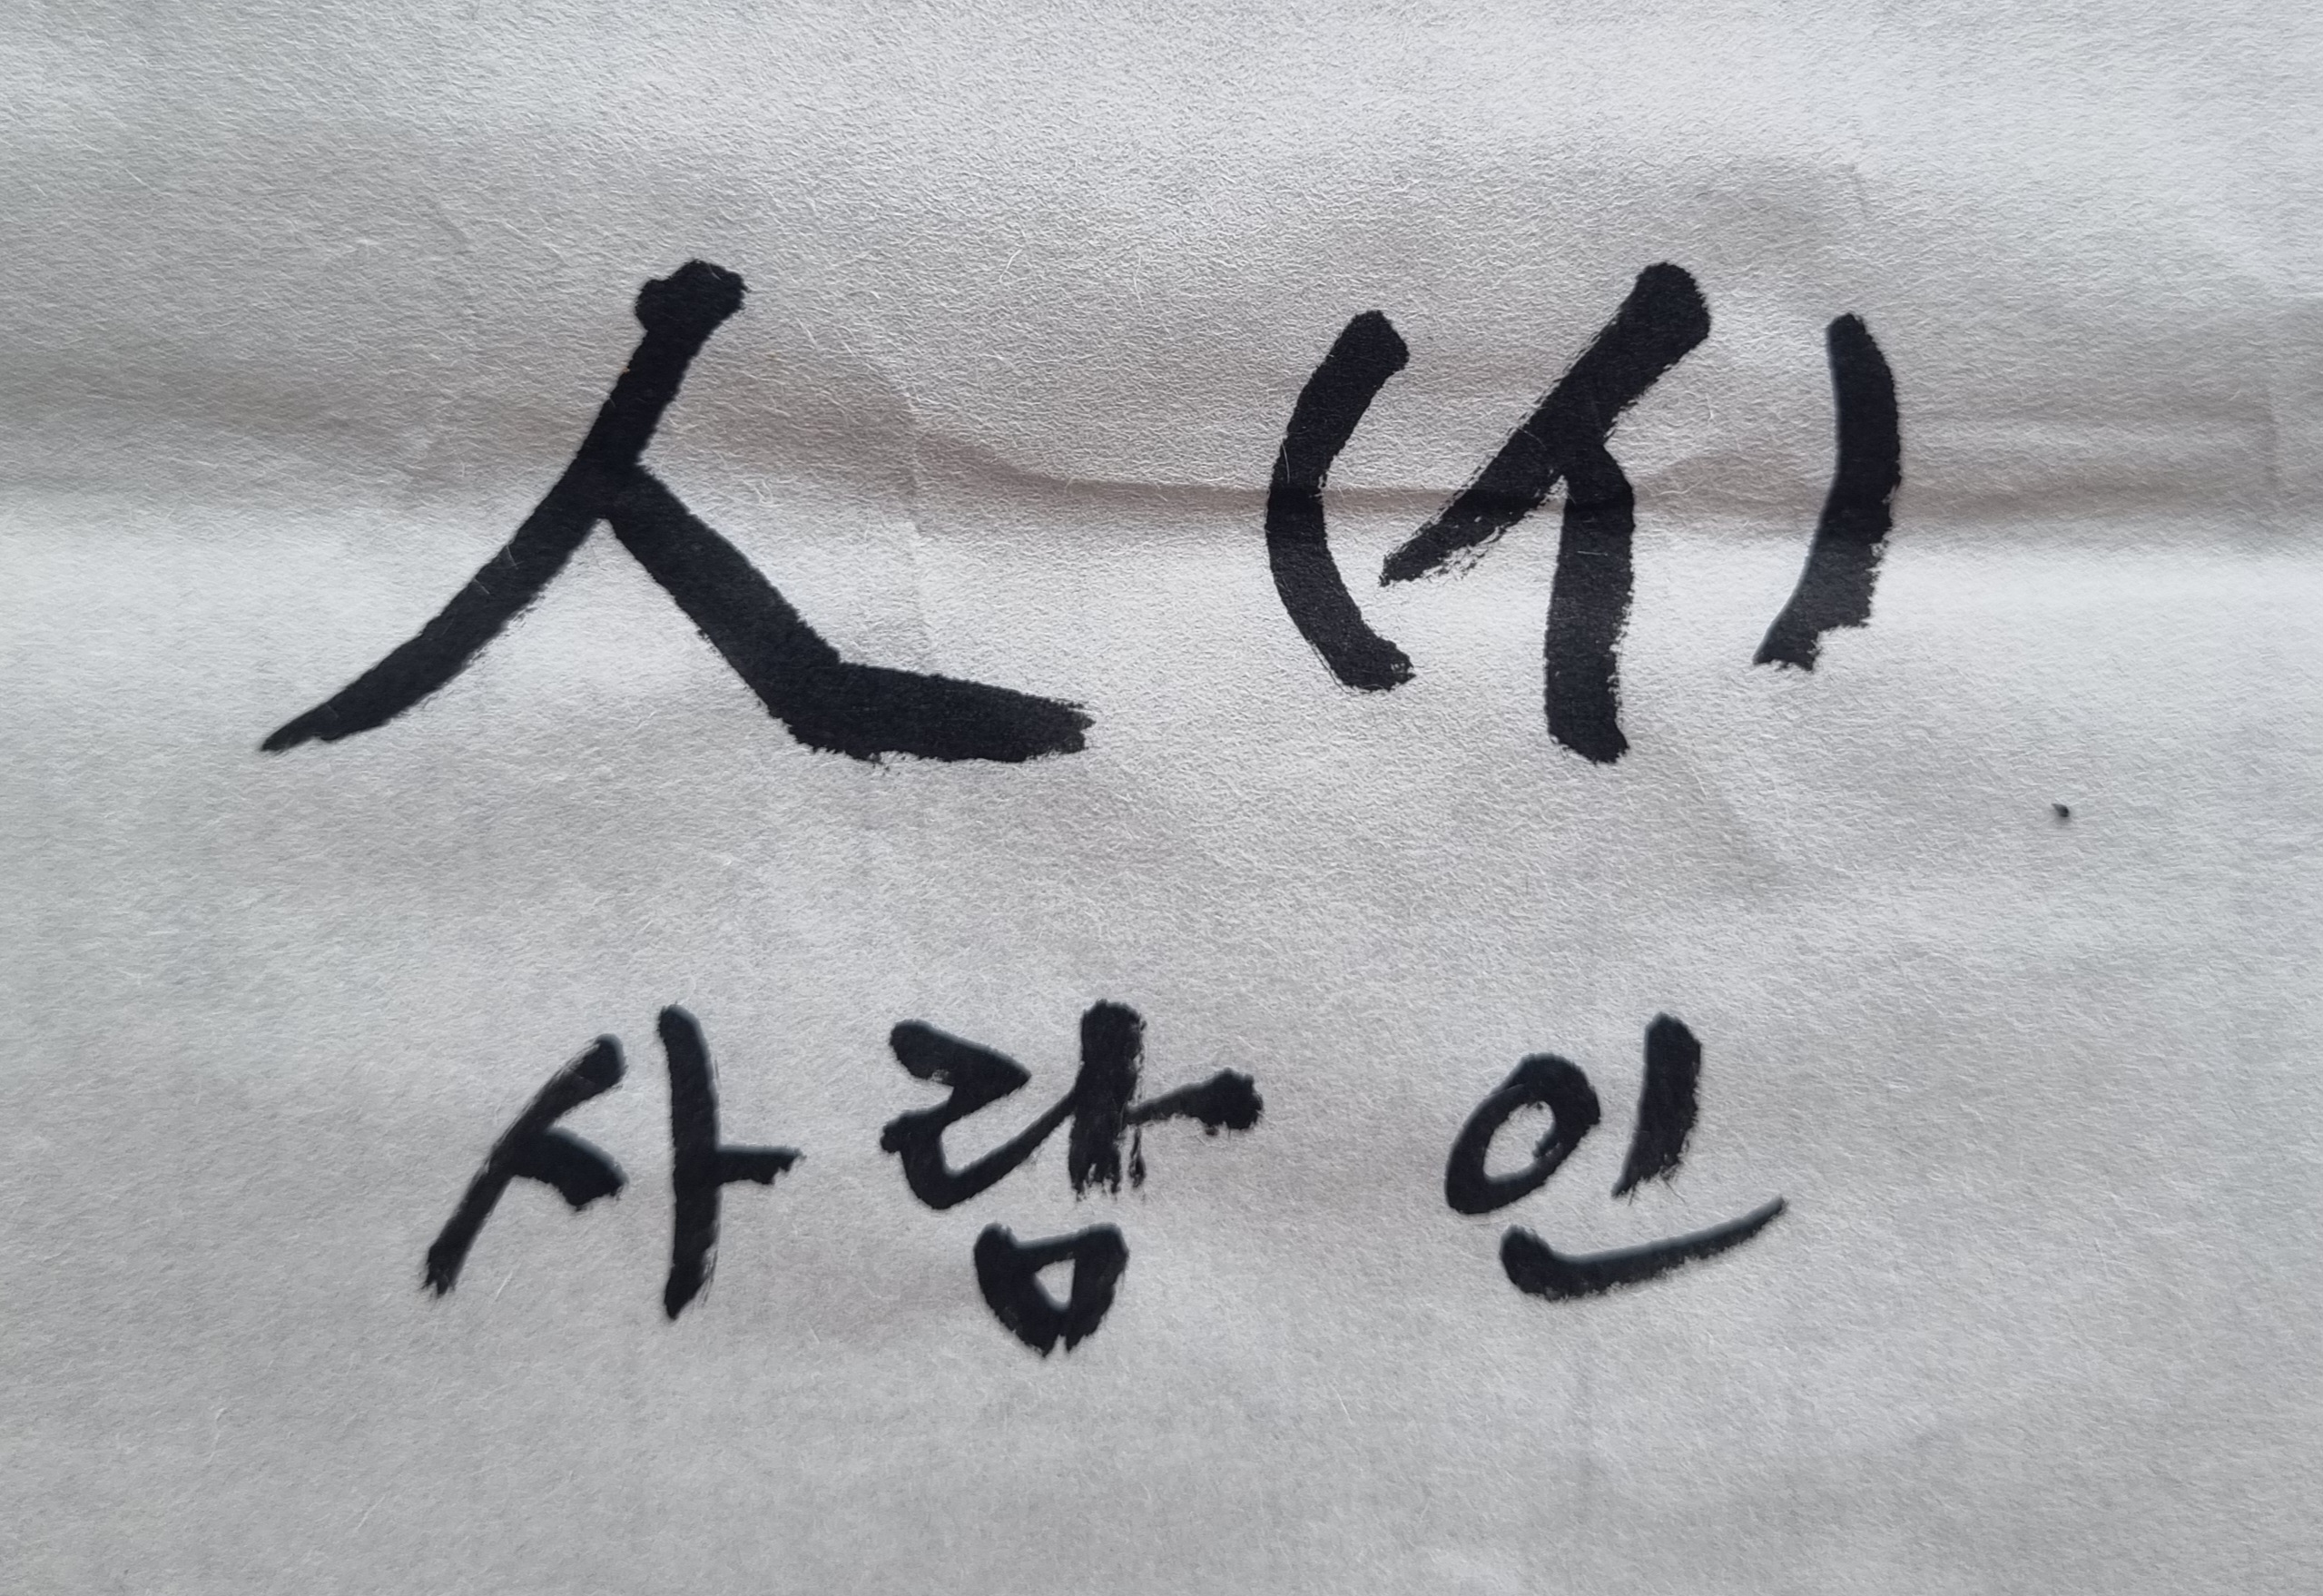 人 (亻)
사람 인